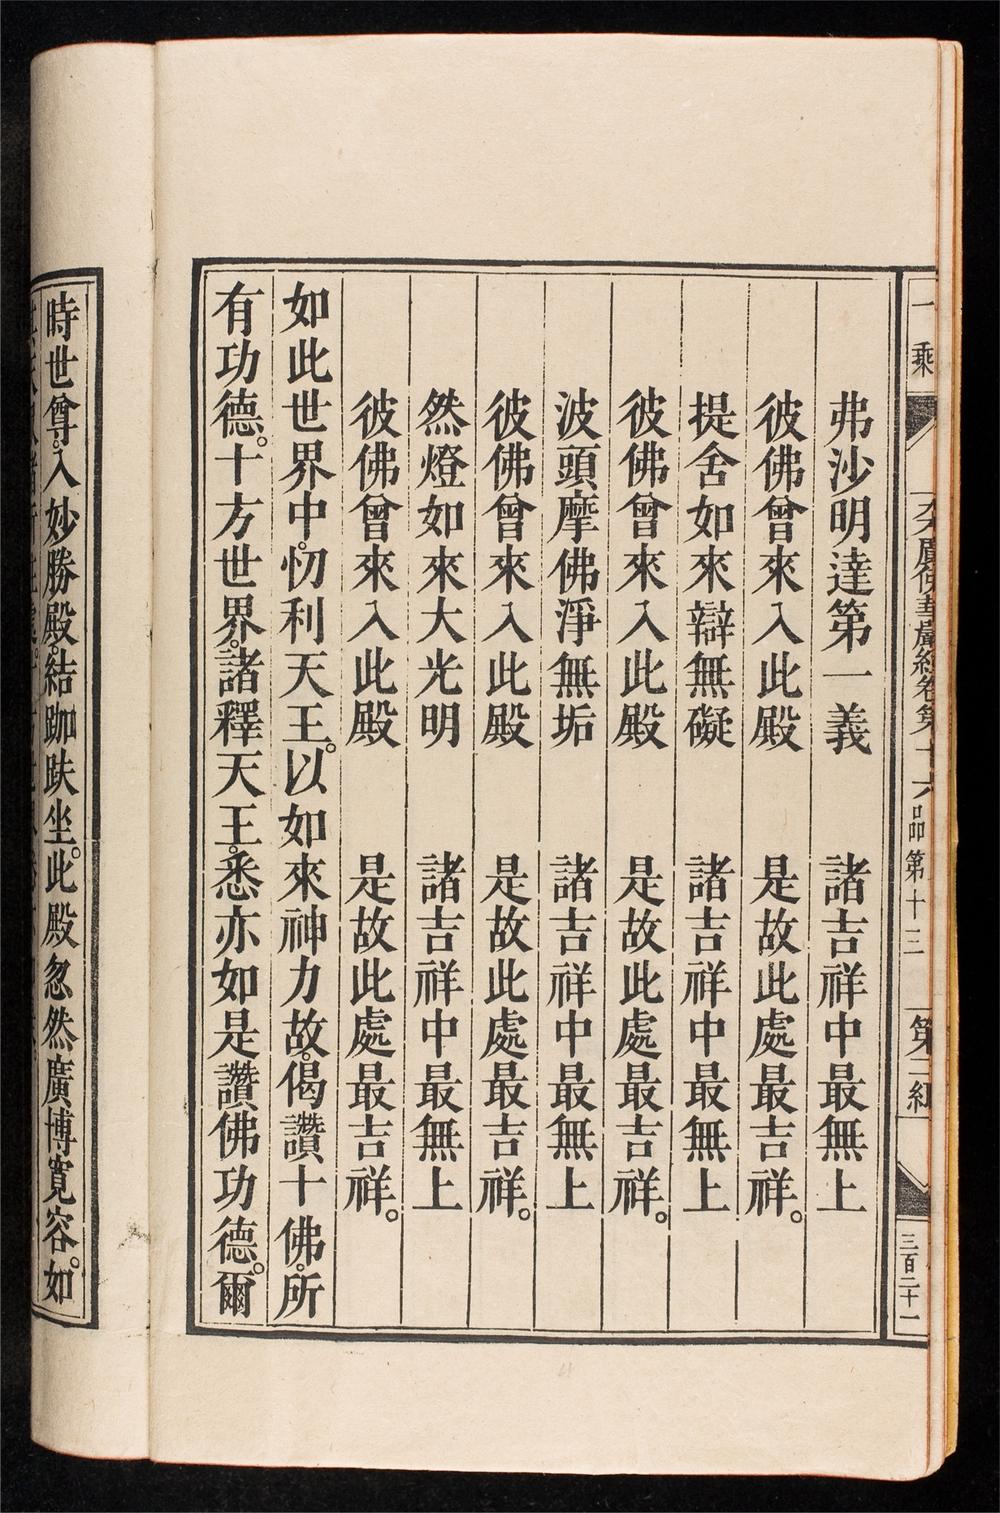 一乘
大廣佛華嚴經卷第十六
品第十三
第二組
三百二十一
弗沙明達第一義　諸吉祥中最無上
彼佛曾來入此殿　是故此處最吉祥。
提舍如來辯無礙　諸吉祥中最無上
彼佛曾來入此殿　是故此處最吉祥。
波頭摩佛淨無垢　諸吉祥中最無上
彼佛曾來入此殿　是故此處最吉祥。
然燈如來大光明　諸吉祥中最無上
彼佛曾來入此殿　是故此處最吉祥。
如此世界中。忉利天王。以如來神力故。偈讚十佛。所
有功德。十方世界。諸釋天王。悉亦如是讚佛功德。爾
時世尊。入妙勝殿。結跏趺坐。此殿忽然廣博寬容。如